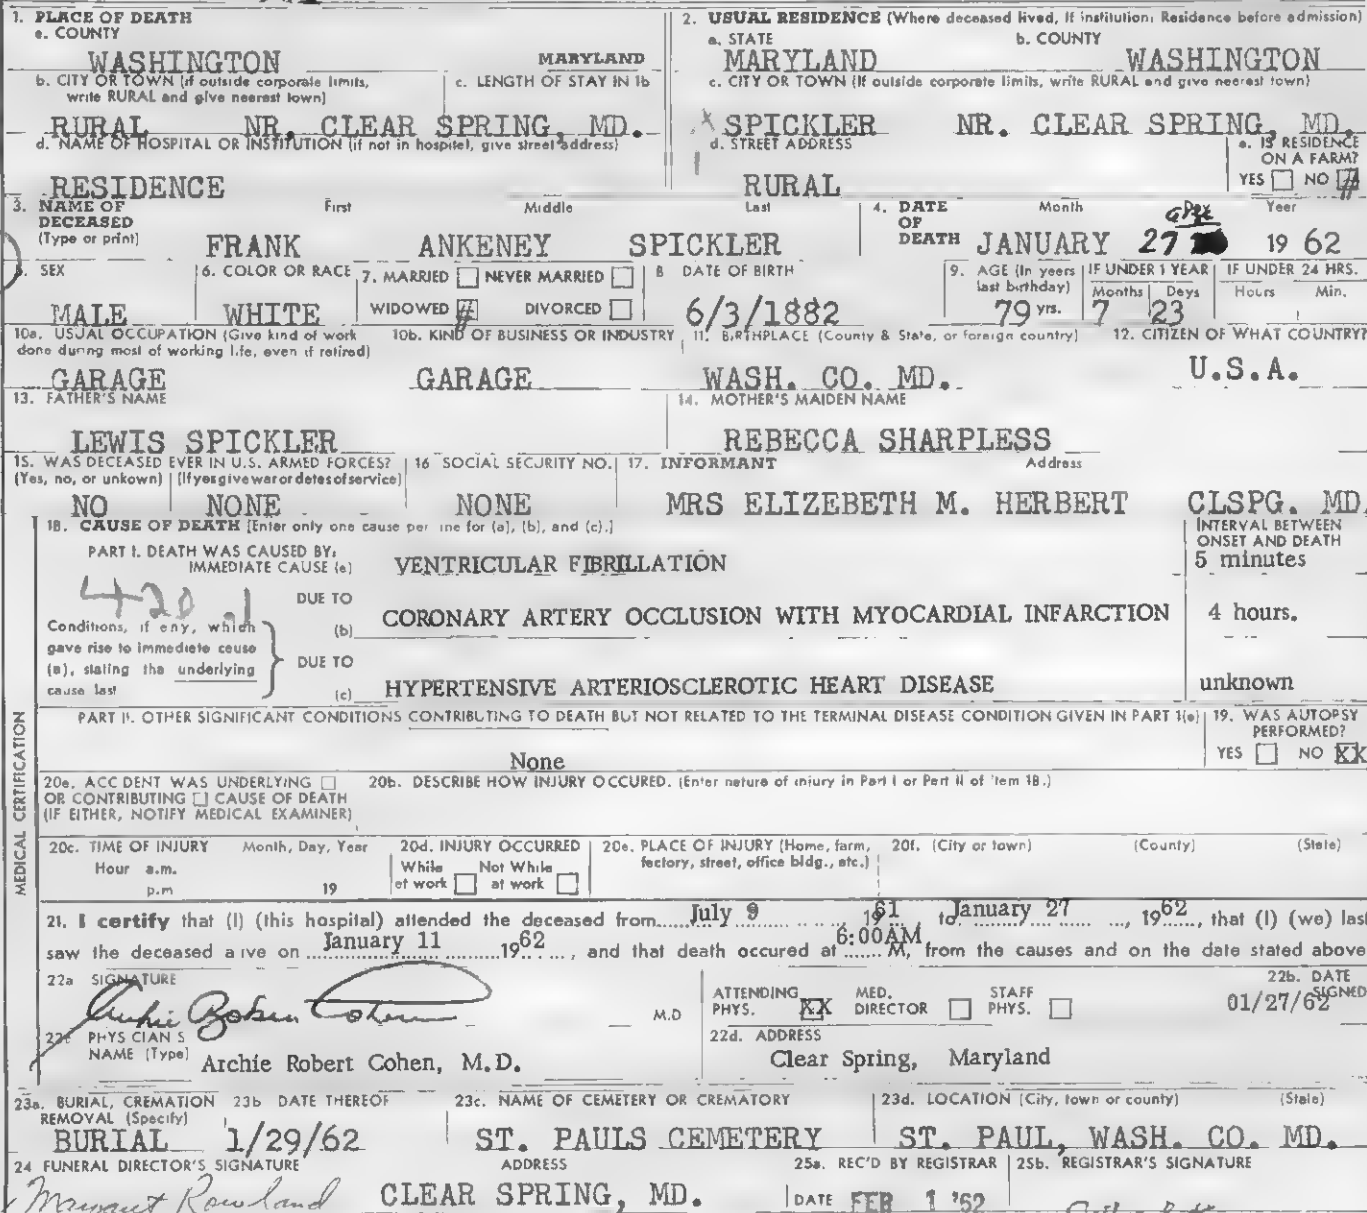 1. PLACE OF DEATH
a. COUNTY
WASHINGTON MARYLAND
b. CITY OR TOWN (if outside corporate limits, write RURAL and give nearest town)
c. LENGTH OF STAY IN 1b
RURAL NR. CLEAR SPRING, MD.
d. NAME OF HOSPITAL OR INSTITUTION (if not in hospital, give street address)
RESIDENCE
2. USUAL RESIDENCE (Where deceased lived, If institution: Residence before admission)
a. STATE b. COUNTY
MARYLAND WASHINGTON
c. CITY OR TOWN (If outside corporate limits, write RURAL and give nearest town)
SPICKLER NR. CLEAR SPRING, MD.
d. STREET ADDRESS
RURAL
e. IS RESIDENCE
ON A FARM?
YES NO #
3. NAME OF
DECEASED
(Type or print)
First Middle Last
FRANK ANKENEY SPICKLER
4. DATE
OF
DEATH
Month Day Year
JANUARY 27 19 62
5. SEX
MALE
6. COLOR OR RACE
WHITE
7. MARRIED NEVER MARRIED
WIDOWED # DIVORCED
8 DATE OF BIRTH
6/3/1882
9. AGE (In years last birthday)
79 yrs.
IF UNDER 1 YEAR
Months Days
7 23
IF UNDER 24 HRS.
Hours Min.
10a. USUAL OCCUPATION (Give kind of work
done during most of working life, even if retired)
GARAGE
10b. KIND OF BUSINESS OR INDUSTRY
GARAGE
11. BIRTHPLACE (County & State, or foreign country)
WASH. CO. MD.
12. CITIZEN OF WHAT COUNTRY?
U.S.A.
13. FATHER'S NAME
LEWIS SPICKLER
14. MOTHER'S MAIDEN NAME
REBECCA SHARPLESS
15. WAS DECEASED EVER IN U.S. ARMED FORCES?
(Yes, no, or unkown) (If yes give war or dates of service)
NO NONE
16 SOCIAL SECURITY NO.
NONE
17. INFORMANT Address
MRS ELIZEBETH M. HERBERT CLSPG. MD.
18. CAUSE OF DEATH [Enter only one cause per line for (a), (b), and (c).]
INTERVAL BETWEEN
ONSET AND DEATH
PART I. DEATH WAS CAUSED BY:
IMMEDIATE CAUSE (a) VENTRICULAR FIBRILLATION 5 minutes
420.1
DUE TO
(b) CORONARY ARTERY OCCLUSION WITH MYOCARDIAL INFARCTION 4 hours.
Conditions, if any, which
gave rise to immediate cause
(a), stating the underlying
cause last
DUE TO
(c) HYPERTENSIVE ARTERIOSCLEROTIC HEART DISEASE unknown
PART II. OTHER SIGNIFICANT CONDITIONS CONTRIBUTING TO DEATH BUT NOT RELATED TO THE TERMINAL DISEASE CONDITION GIVEN IN PART 1(a)
None
19. WAS AUTOPSY
PERFORMED?
YES NO XX
MEDICAL CERTIFICATION
20a. ACCIDENT WAS UNDERLYING
OR CONTRIBUTING CAUSE OF DEATH
(IF EITHER, NOTIFY MEDICAL EXAMINER)
20b. DESCRIBE HOW INJURY OCCURED. (Enter nature of injury in Part I or Part II of item 18.)
20c. TIME OF INJURY Month, Day, Year
Hour a.m.
p.m 19
20d. INJURY OCCURRED
While Not While
at work at work
20e. PLACE OF INJURY (Home, farm,
factory, street, office bldg., etc.)
20f. (City or town) (County) (State)
21. I certify that (I) (this hospital) attended the deceased from July 9 1961 to January 27, 1962, that (I) (we) last
saw the deceased alive on January 11 1962, and that death occured at 6:00AM M, from the causes and on the date stated above
22a SIGNATURE
Archie Robert Cohen M.D
ATTENDING
PHYS. XX
MED.
DIRECTOR
STAFF
PHYS.
22b. DATE
SIGNED
01/27/62
22c PHYSICIAN'S
NAME (Type) Archie Robert Cohen, M.D.
22d. ADDRESS
Clear Spring, Maryland
23a. BURIAL, CREMATION
REMOVAL (Specify)
BURIAL
23b DATE THEREOF
1/29/62
23c. NAME OF CEMETERY OR CREMATORY
ST. PAULS CEMETERY
23d. LOCATION (City, town or county) (State)
ST. PAUL, WASH. CO. MD.
24 FUNERAL DIRECTOR'S SIGNATURE
Rowland
ADDRESS
CLEAR SPRING, MD.
25a. REC'D BY REGISTRAR
DATE FEB 1 '62
25b. REGISTRAR'S SIGNATURE